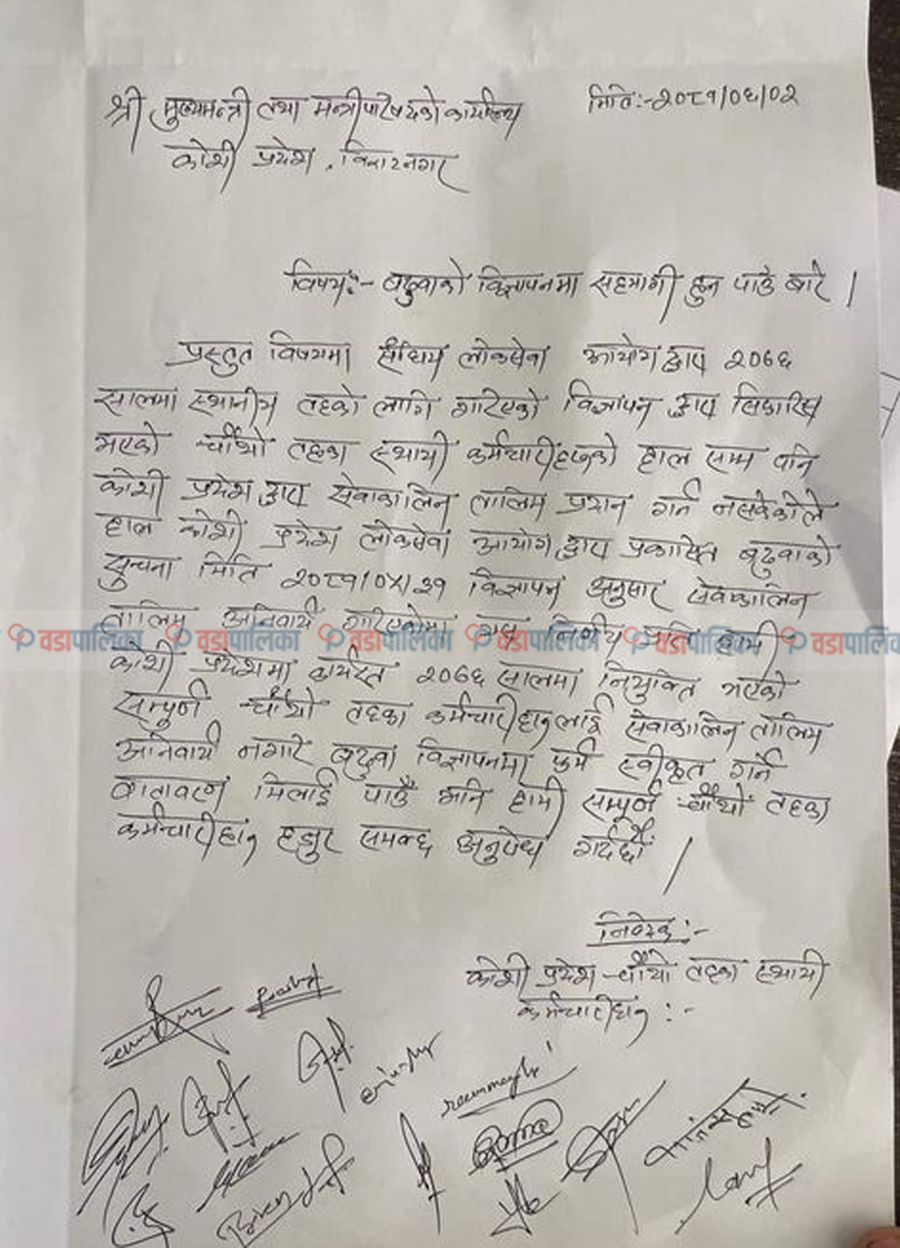 मिति:-२०८१/०६/०२
श्री मुख्यमन्त्री तथा मन्त्रीपरिषदको कार्यालय
कोशी प्रदेश, विराटनगर
विषय:- बढुवाको विज्ञापनमा सहभागी हुन पाउँ बारे ।
प्रस्तुत विषयमा संघिय लोकसेवा आयोग द्वारा २०७६
सालमा स्थानीय तहको लागि गरिएको विज्ञापन द्वारा सिफारिस
भएको चौंथो तहका स्थायी कर्मचारीहरुको हाल सम्म पनि
कोशी प्रदेश द्वारा सेवाकालिन तालिम प्रदान गर्न नसकेकोले
हाल कोशी प्रदेश लोकसेवा आयोग द्वारा प्रकाशित बढुवाको
सुचना मिति २०८१/०५/३१ विज्ञापन अनुसार सेवाकालिन
तालिम अनिवार्य गरिएकोमा निर्णय प्रति हामी
कोशी प्रदेशमा कार्यरत २०७६ सालमा नियुक्ति भएको
सम्पुर्ण चौंथो तहका कर्मचारीहरुलाई सेवाकालिन तालिम
अनिवार्य नगरि बढुवा विज्ञापनमा फर्म स्वीकृत गर्ने
वातावरण मिलाई पाउँ भनि हामी सम्पूर्ण चौंथो तहका
कर्मचारीहरु हजुर समक्ष अनुरोध गर्दछौं ।
निवेदक:-
कोशी प्रदेश चौंथो तहका स्थायी
कर्मचारीहरु :-
वडापालिका वडापालिका वडापालिका वडापालिका वडापालिका